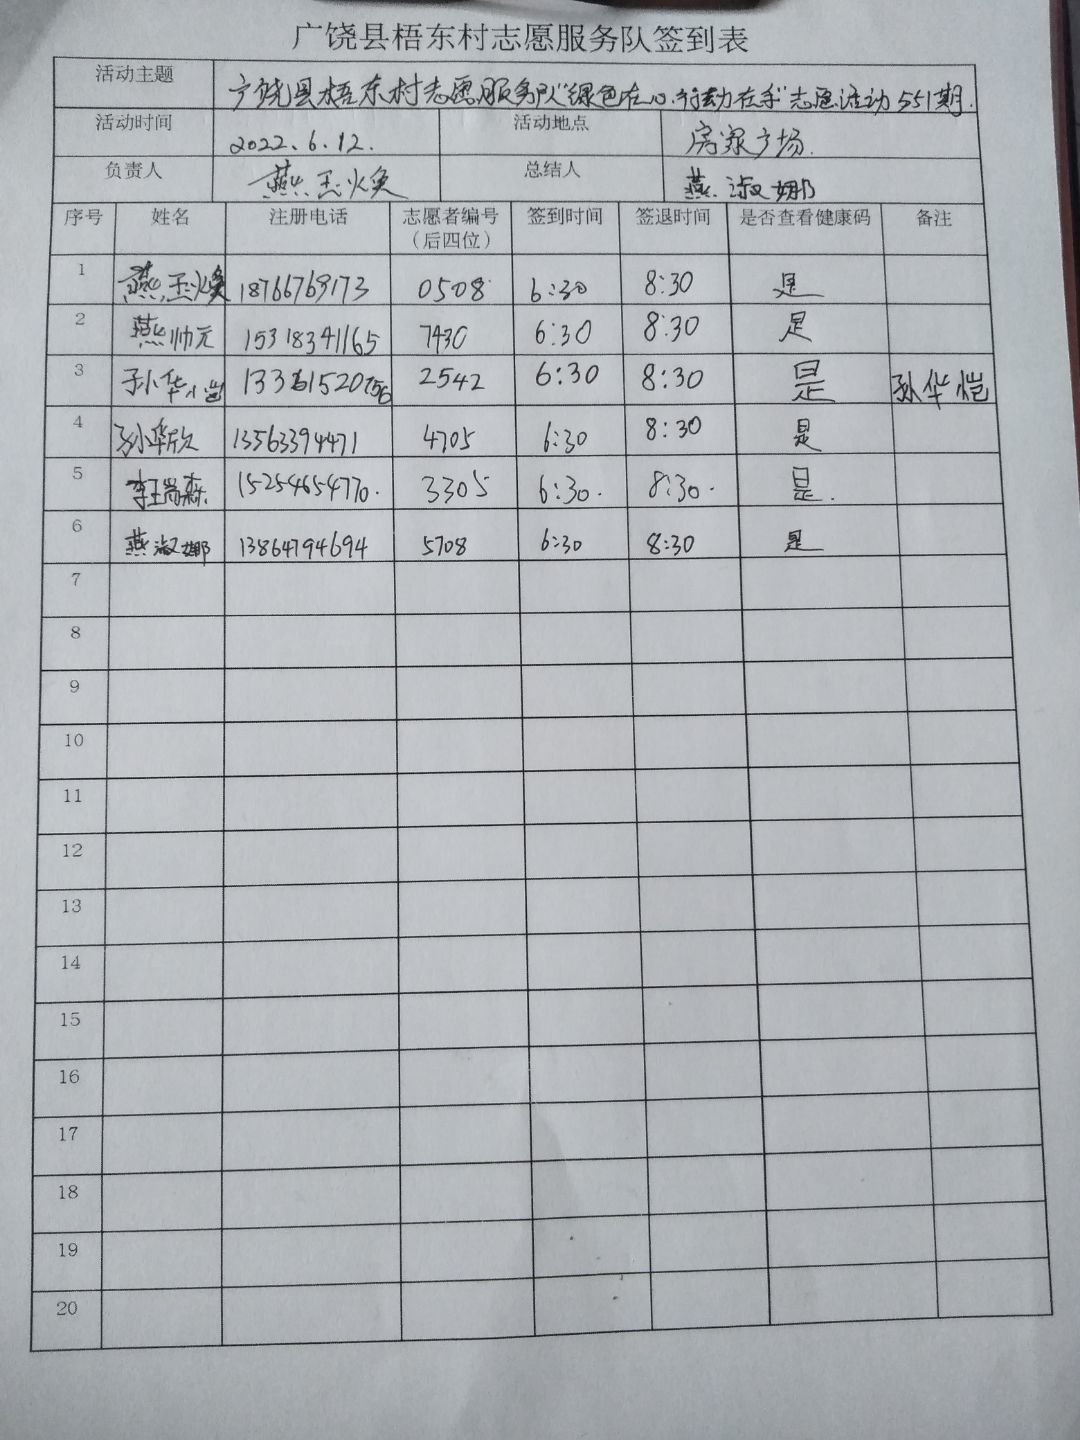 广饶县梧东村志愿服务队签到表
活动主题 广饶县梧东村志愿服务队“绿色在心、行动在手”志愿活动551期.
活动时间 2022.6.12. 活动地点 房家广场.
负责人 燕玉焕 总结人 燕淑娜
序号 姓名 注册电话 志愿者编号（后四位） 签到时间 签退时间 是否查看健康码 备注
1 燕玉焕 18766769173 0508 6:30 8:30 是
2 燕帅元 15318341165 7430 6:30 8:30 是
3 孙华恺 2542 6:30 8:30 是 孙华恺
4 孙华欣 13563394471 4705 6:30 8:30 是
5 李瑞森 15254654770. 3305 6:30. 8:30. 是.
6 燕淑娜 13864794694 5708 6:30 8:30 是
7
8
9
10
11
12
13
14
15
16
17
18
19
20